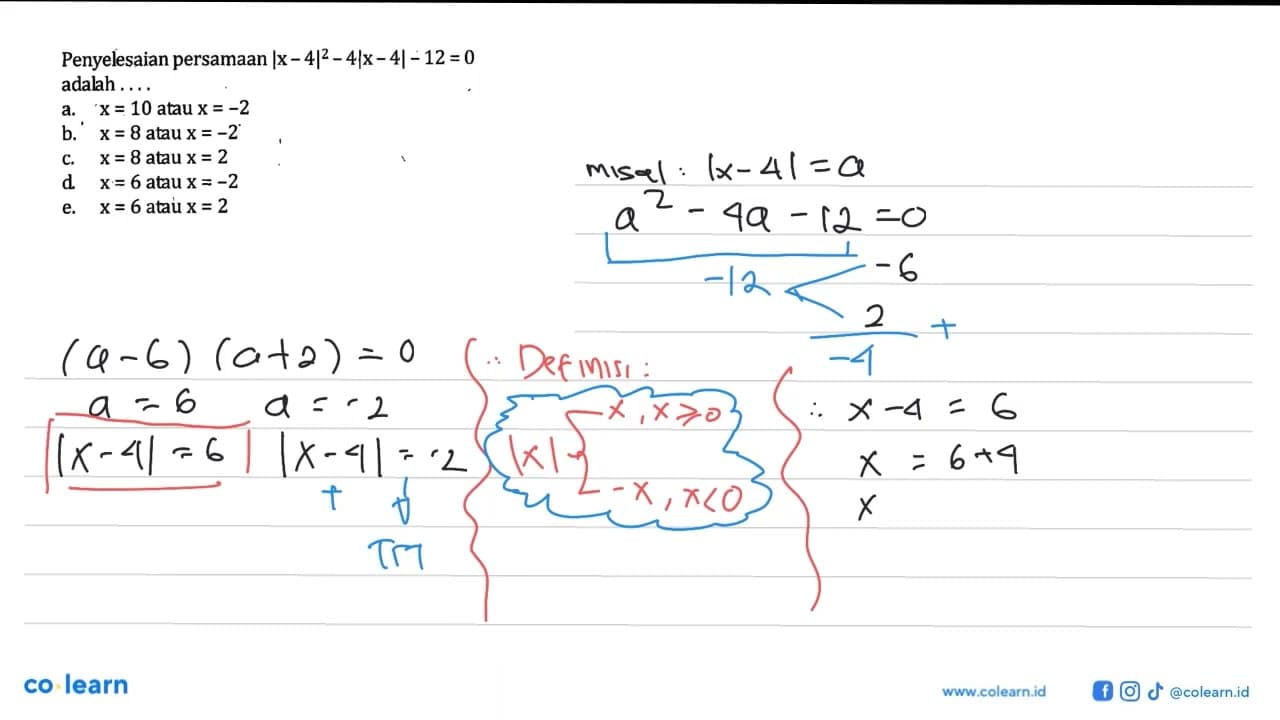 Penyelesaian persamaan |x – 4|² – 4|x – 4| – 12 = 0
adalah . . . .
a. x = 10 atau x = –2
b. x = 8 atau x = –2
c. x = 8 atau x = 2
d. x = 6 atau x = –2
e. x = 6 atau x = 2
misal : |x - 4| = a
a² - 4a - 12 = 0
-12 < -6
2 +
-4
(a - 6) (a + 2) = 0
a = 6 a = -2
|x - 4| = 6 |x - 4| = -2
+ ↓
TM
∴ Definisi :
|x| x , x ≥ 0
-x , x < 0
∴ x - 4 = 6
x = 6 + 4
x
co learn
www.colearn.id @colearn.id